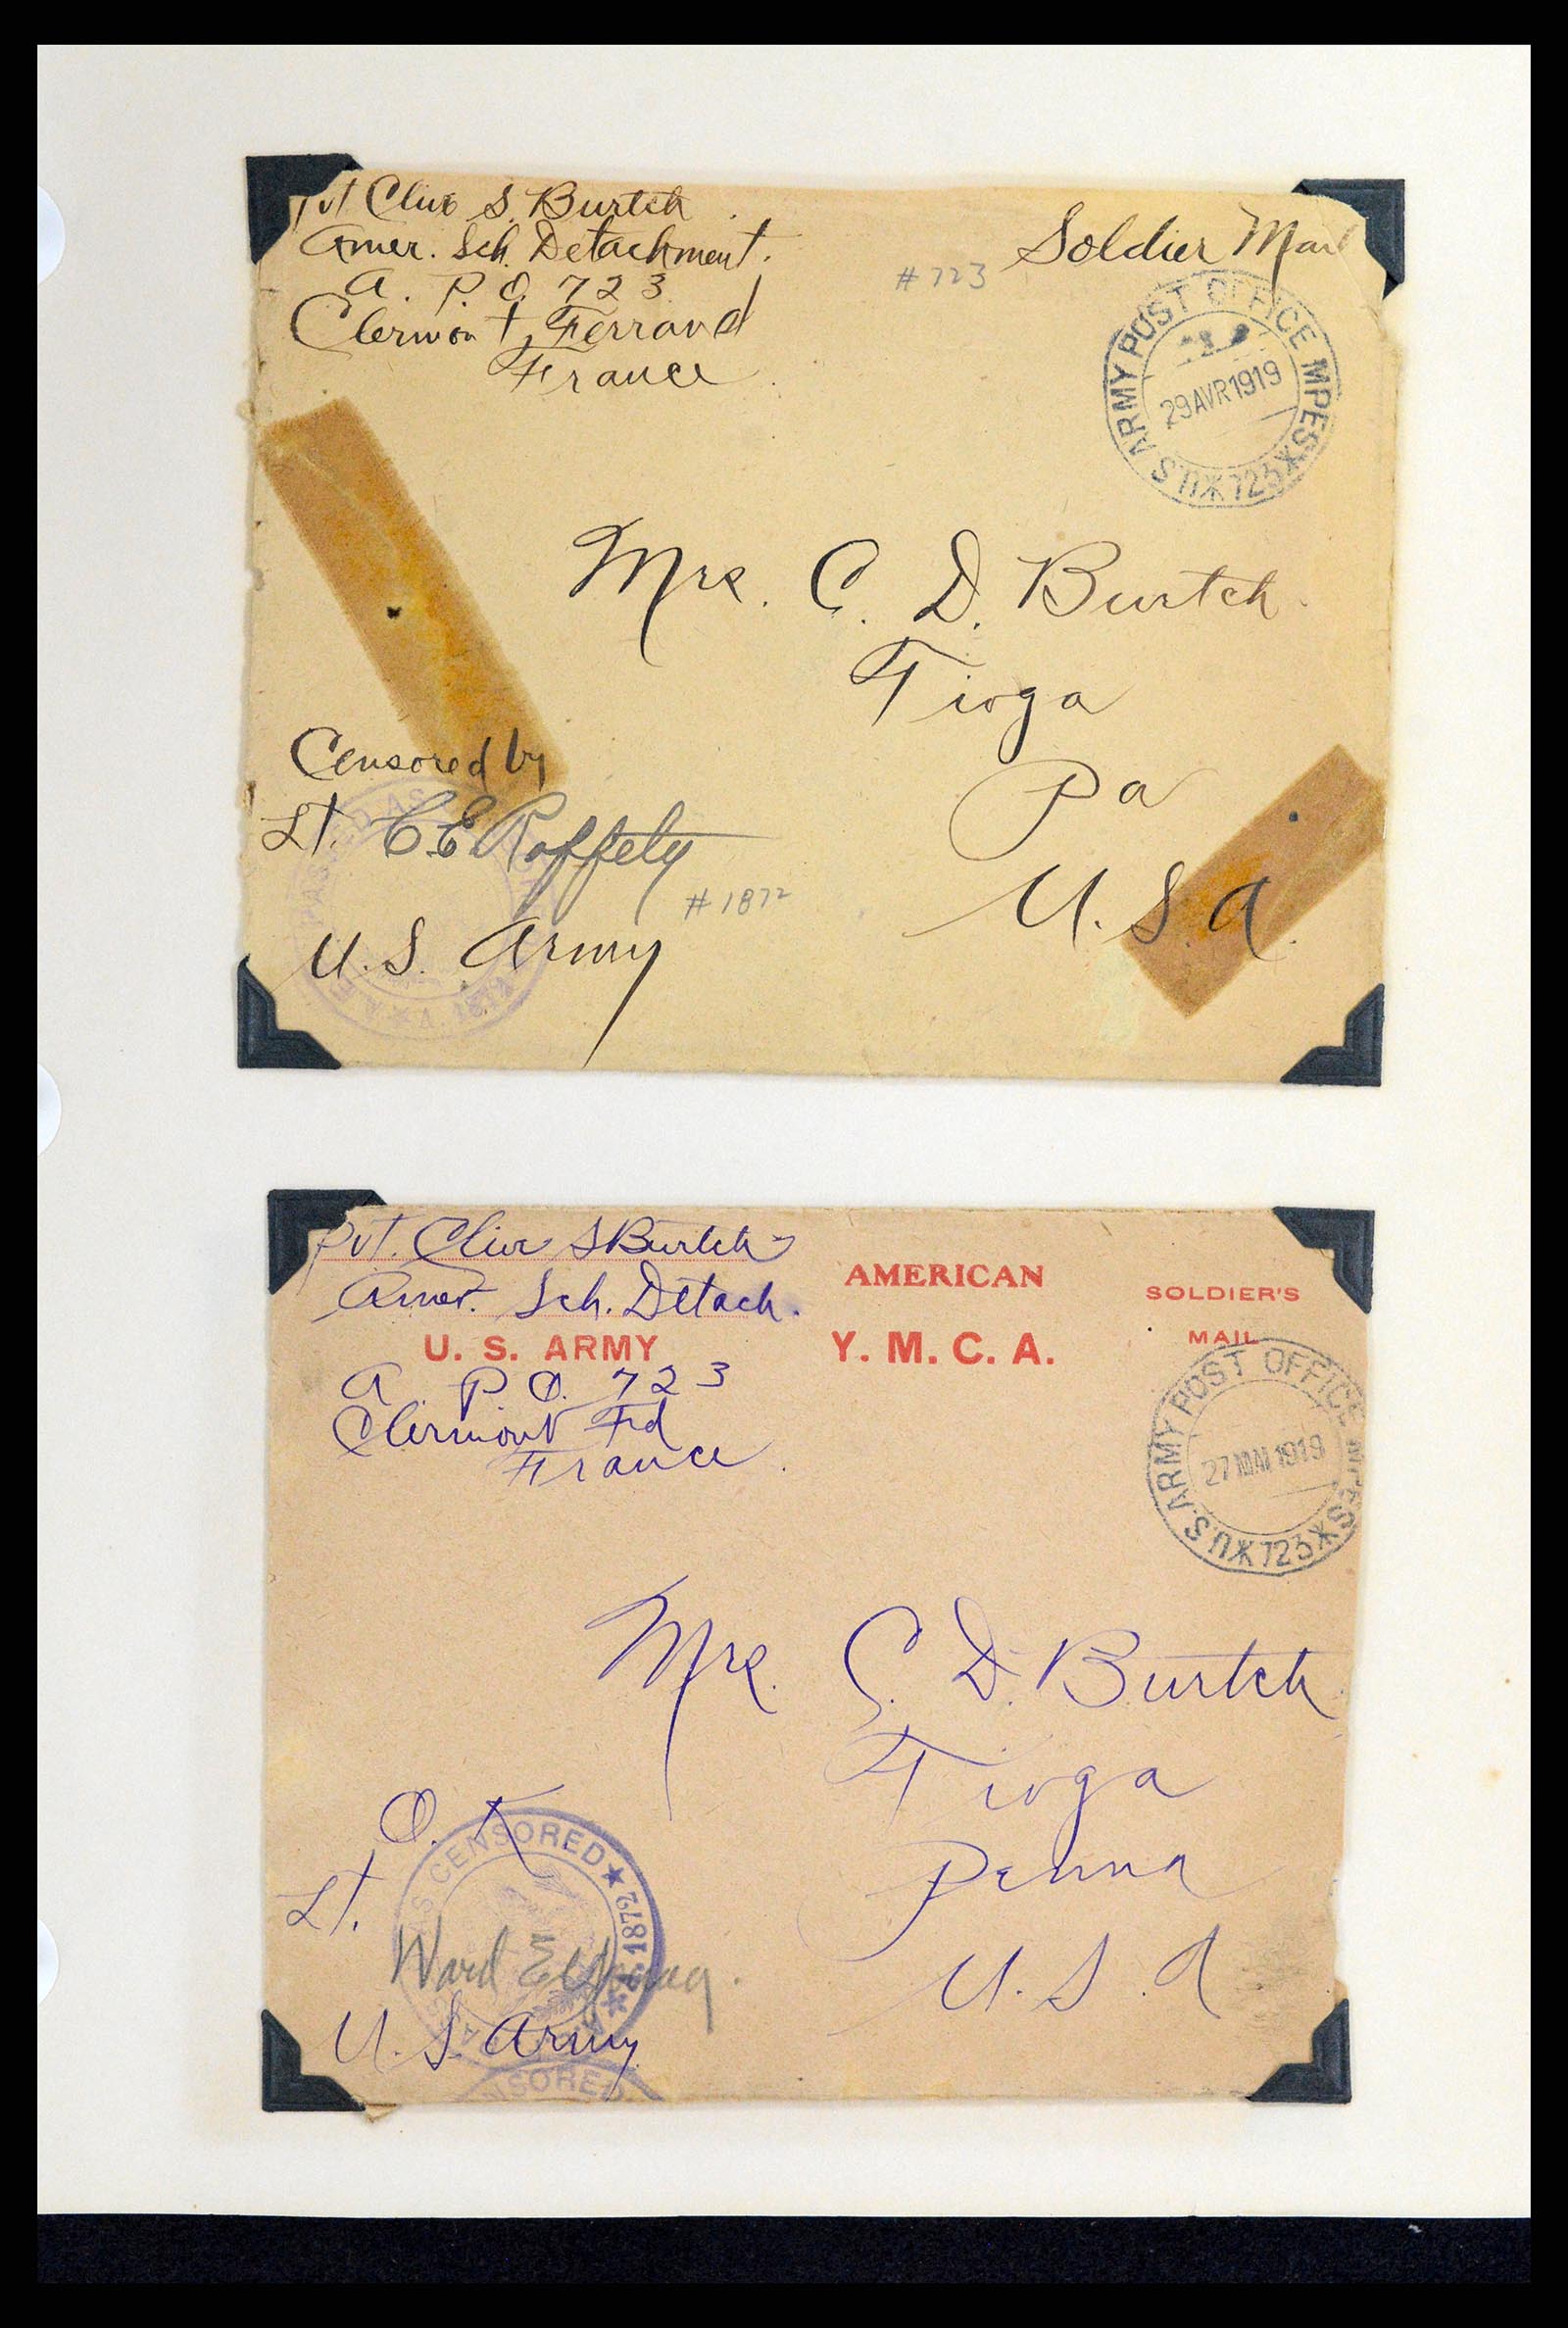 Pvt Clive S. Burtch
Amer. Sch. Detachment.
A. P. O. 723
Clermont, Ferrand
France
Soldier Mail
#723
U.S. ARMY POST OFFICE MPES
29 AVR 1919
723
Mrs. C. D. Burtch
Tioga
Pa
U.S.A.
Censored by
Lt. C E Raffety
#1872
U.S. Army
PASSED AS
Pvt. Clive S Burtch
Amer. Sch. Detach.
U. S. ARMY
A. P. O. 723
Clermont Frd
France
AMERICAN
Y. M. C. A.
SOLDIER'S
MAIL
U.S. ARMY POST OFFICE MPES
27 MAI 1919
723
Mrs. C. D. Burtch
Tioga
Penna
U.S.A
O. K
Lt.
Ward E
U.S. Army
AS CENSORED
1872
NSORED